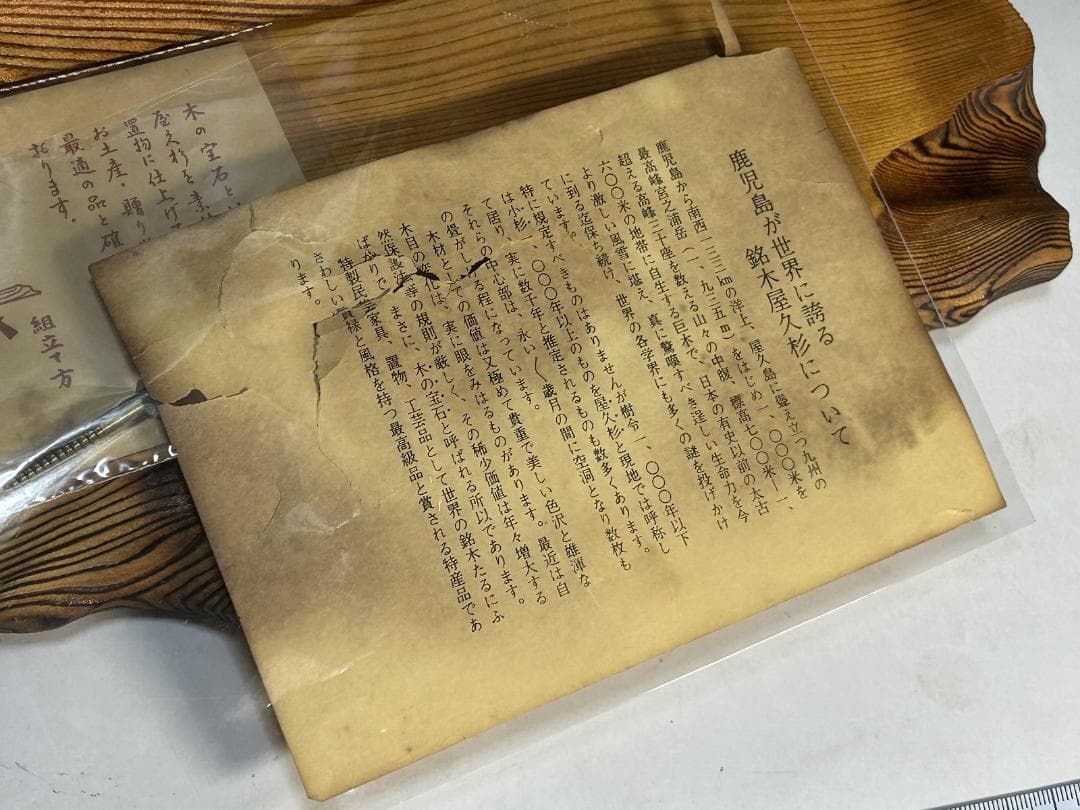 鹿児島が世界に誇る
銘木屋久杉について
鹿児島から南西一三三kmの洋上、屋久島に聳え立つ九州の
最高峰宮之浦岳(一、九三五m)をはじめ一、〇〇〇米を
超える高峰三十座を数える山々の中腹、標高七〇〇米ー一、
六〇〇米の地帯に自生する巨木で、日本の有史以前の太古
より激しい風雪に堪え、真に驚嘆すべき逞しい生命力を今
に到る迄保ち続け、世界の各学界にも多くの謎を投げかけ
ています。
特に規定すべきものはありませんが樹令一、〇〇〇年以下
は小杉一、〇〇〇年以上のものを屋久杉と現地では呼称し
て居り、実に数千年と推定されるものも数多くあります。
それらの中心部は、永い〱歳月の間に空洞となり数枚も
の畳がしける程になっています。
木材としての価値は又極めて貴重で美しい色沢と雄渾な
木目の変化は、実に眼をみはるものがあります。最近は自
然保護法等の規則が厳しく、その稀少価値は年々増大する
ばかりで、まさに、木の宝石と呼ばれる所以であります。
特製民芸家具、置物、工芸品として世界の銘木たるにふ
さわしい貫禄と風格を持つ最高級品と賞される特産品であ
ります。
木の宝石とい
屋久杉を素
置物に仕上げて
お土産・贈り
最適の品と確
おります。
組立て方